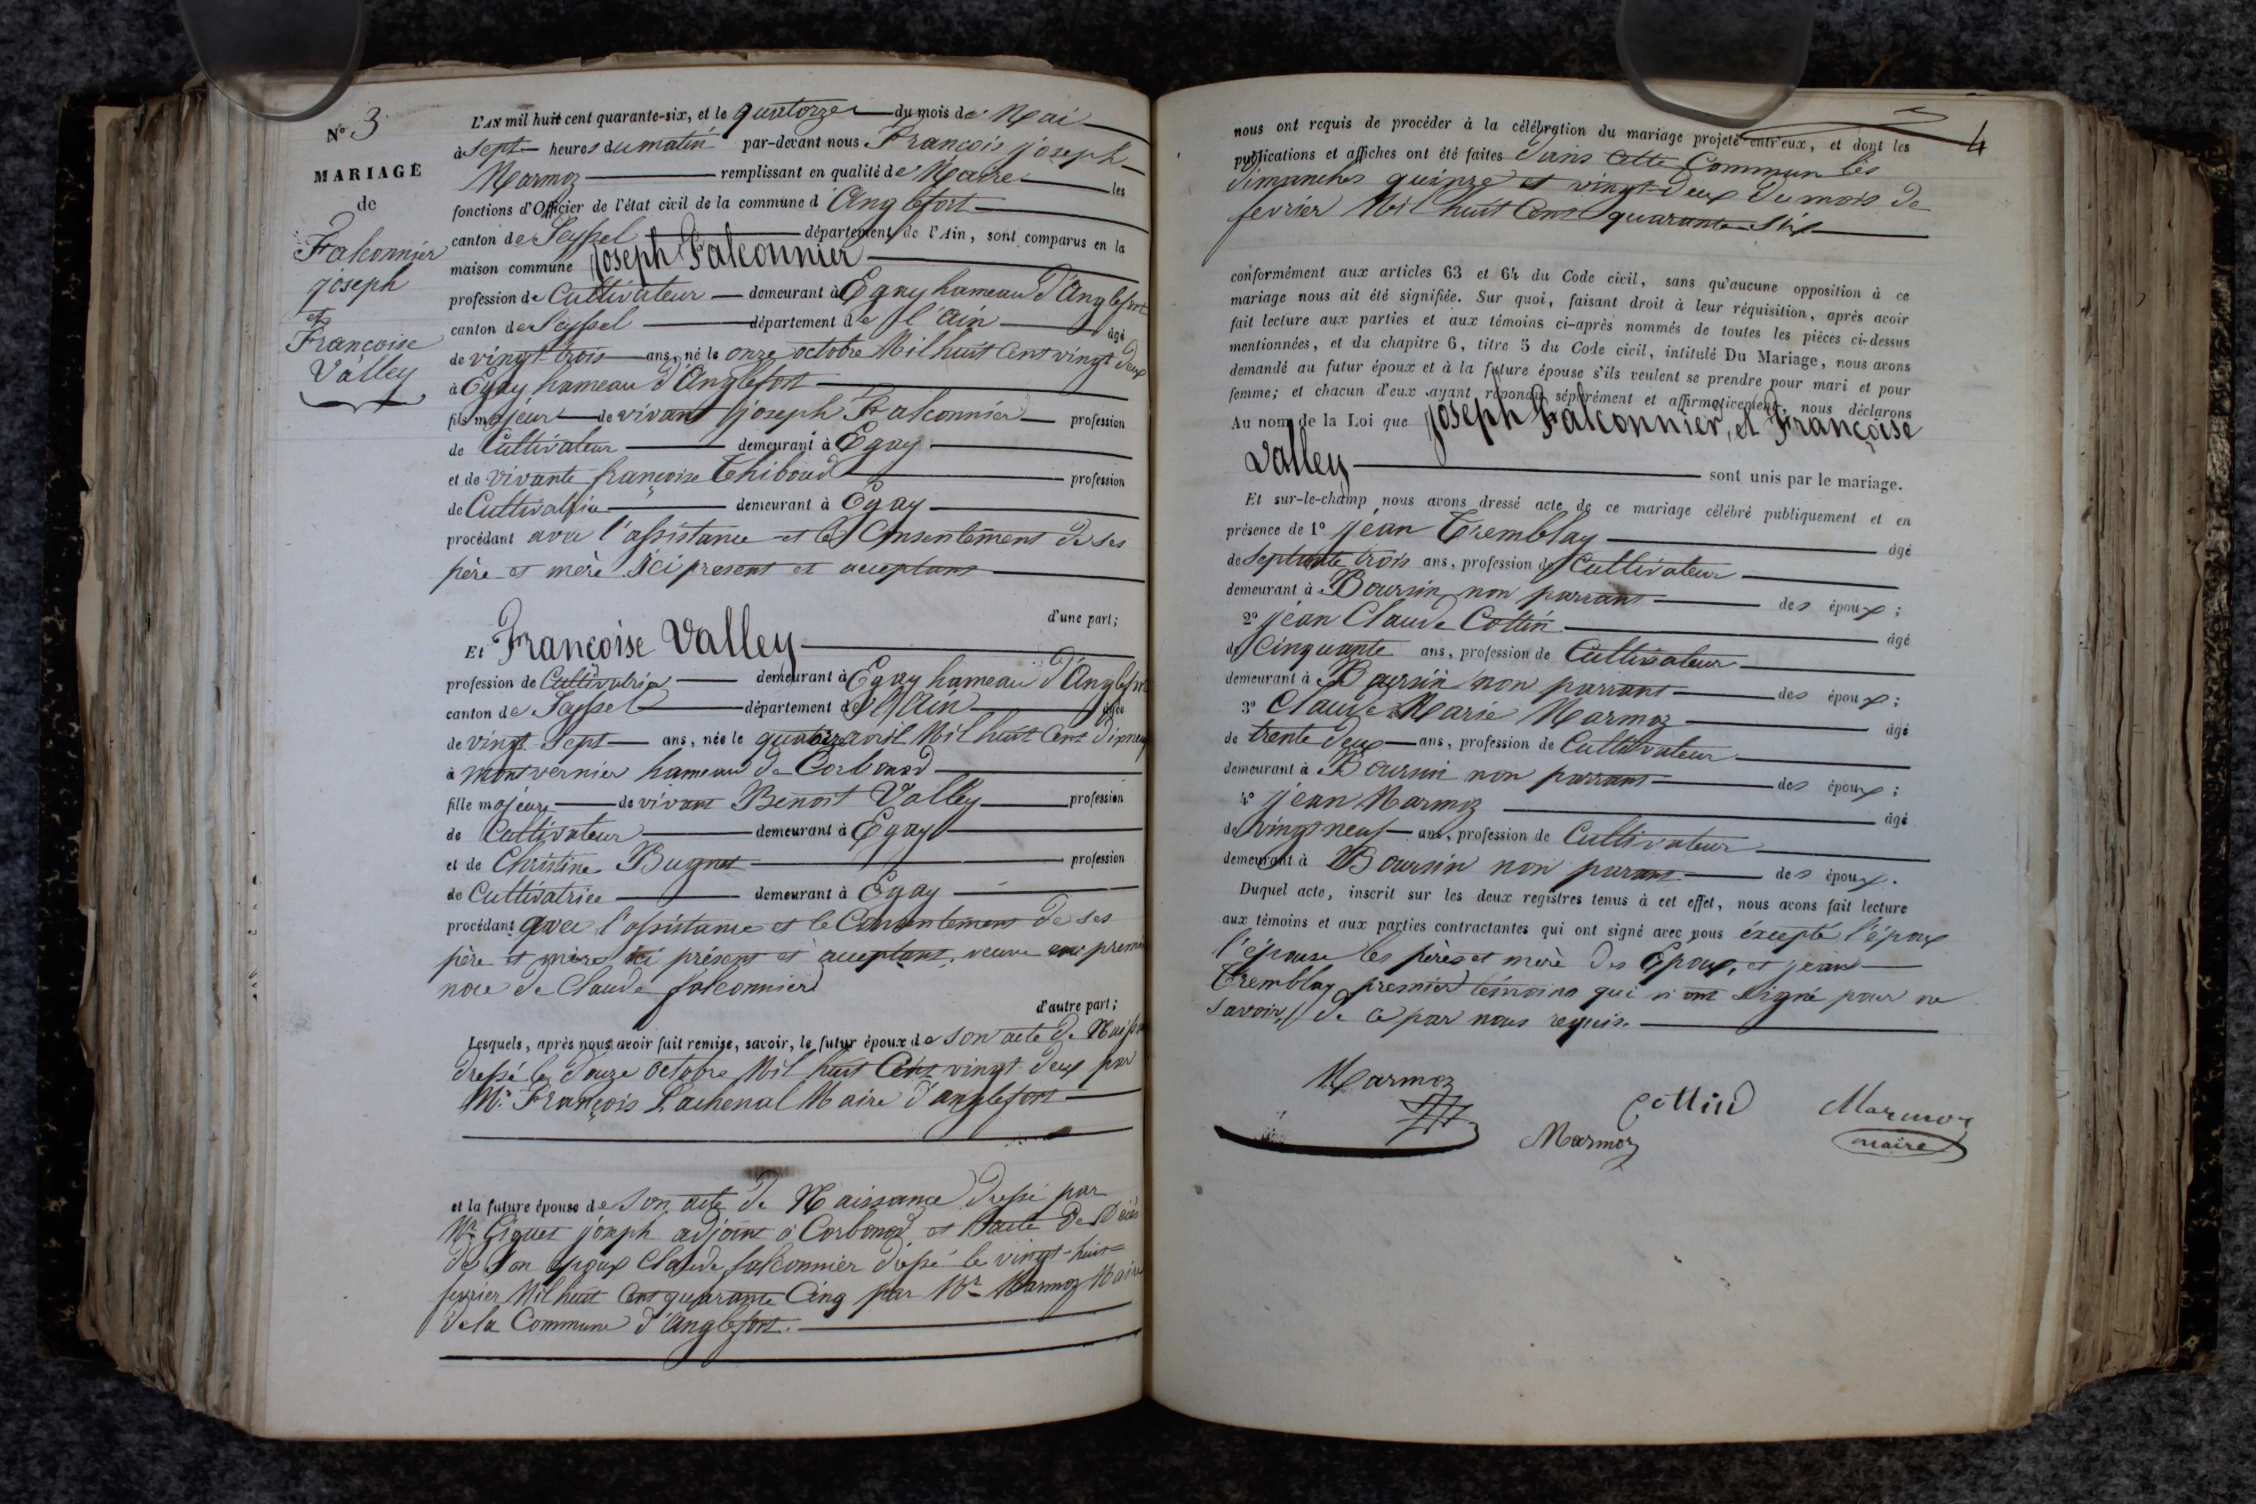 N° 3
MARIAGE
de
Falconnier
joseph
et
Françoise
Valley
L'AN mil huit cent quarante-six, et le quatorze du mois de Mai
à sept heures du matin par-devant nous François joseph
Marmoz remplissant en qualité de Maire les
fonctions d'Officier de l'état civil de la commune d'Anglefort
canton de Seyssel département de l'Ain, sont comparus en la
maison commune Joseph Falconnier
profession de Cultivateur demeurant à Egay hameau d'Anglefort
canton de Seyssel département de l'ain âgé
de vingt trois ans, né le onze octobre Mil huit Cent vingt deux
à Egay hameau d'Anglefort
fils majeur de vivant joseph Falconnier profession
de Cultivateur demeurant à Egay
et de vivante françoise Thiboud profession
de Cultivatrice demeurant à Egay
procédant avec l'assistance et le Consentement de ses
père et mère ici present et acceptant
d'une part;
Et Françoise Valley
profession de Cultivatrice demeurant à Egay hameau d'Anglefort
canton de Seyssel département de l'Ain âgée
de vingt sept ans, née le avril Mil huit Cent dixneuf
à montvernier hameau de Corbonod
fille majeure de vivant Benoit Valley profession
de Cultivateur demeurant à Egay
et de Christine Bugnet profession
de Cultivatrice demeurant à Egay
procédant avec l'assistance et le Consentement de ses
père et mère ici présent et acceptant, veuve en premier
noce de Claude falconnier
d'autre part;
Lesquels, après nous avoir fait remise, savoir, le futur époux de son acte de Naissance
dressé le douze Octobre Mil huit Cent vingt deux par
Mr. François Lachenal Maire d'anglefort
et la future épouse de son acte de Naissance dressé par
Mr Giguet joseph adjoint à Corbonod et l'acte de Décès
de son époux Claude falconnier dressé le vingt-huit
fevrier Mil huit Cent quarante Cinq par Mr Marmoz Maire
de la Commune d'Anglefort.
4
nous ont requis de procéder à la célébration du mariage projeté entr'eux, et dont les
publications et affiches ont été faites dans cette Commun les
dimanches quinze et vingt deux du mois de
fevrier Mil huit Cent quarante Six
conformément aux articles 63 et 64 du Code civil, sans qu'aucune opposition à ce
mariage nous ait été signifiée. Sur quoi, faisant droit à leur réquisition, après avoir
fait lecture aux parties et aux témoins ci-après nommés de toutes les pièces ci-dessus
mentionnées, et du chapitre 6, titre 5 du Code civil, intitulé Du Mariage, nous avons
demandé au futur époux et à la future épouse s'ils veulent se prendre pour mari et pour
femme; et chacun d'eux ayant répondu séparément et affirmativement, nous déclarons
Au nom de la Loi que Joseph Falconnier, et Françoise
Valley sont unis par le mariage.
Et sur-le-champ nous avons dressé acte de ce mariage célébré publiquement et en
présence de 1° jean Tremblay âgé
de septante trois ans, profession de Cultivateur
demeurant à Boursin non parrant des époux;
2° jean Claude Cottin âgé
de Cinquante ans, profession de Cultivateur
demeurant à Boursin non parrant des époux;
3° Claude Marie Marmoz âgé
de trente deux ans, profession de Cultivateur
demeurant à Boursin non parrant des époux;
4° jean Marmoz âgé
de vingt neuf ans, profession de Cultivateur
demeurant à Boursin non parant des époux.
Duquel acte, inscrit sur les deux registres tenus à cet effet, nous avons fait lecture
aux témoins et aux parties contractantes qui ont signé avec nous éxcepté l'époux
l'épouse les pères et mère des Epoux, et jean
Tremblay premier témoins qui n'ont signé pour ne
savoir, de ce par nous requis.
Marmoz
Cottin
Marmoz
Marmoz
maire